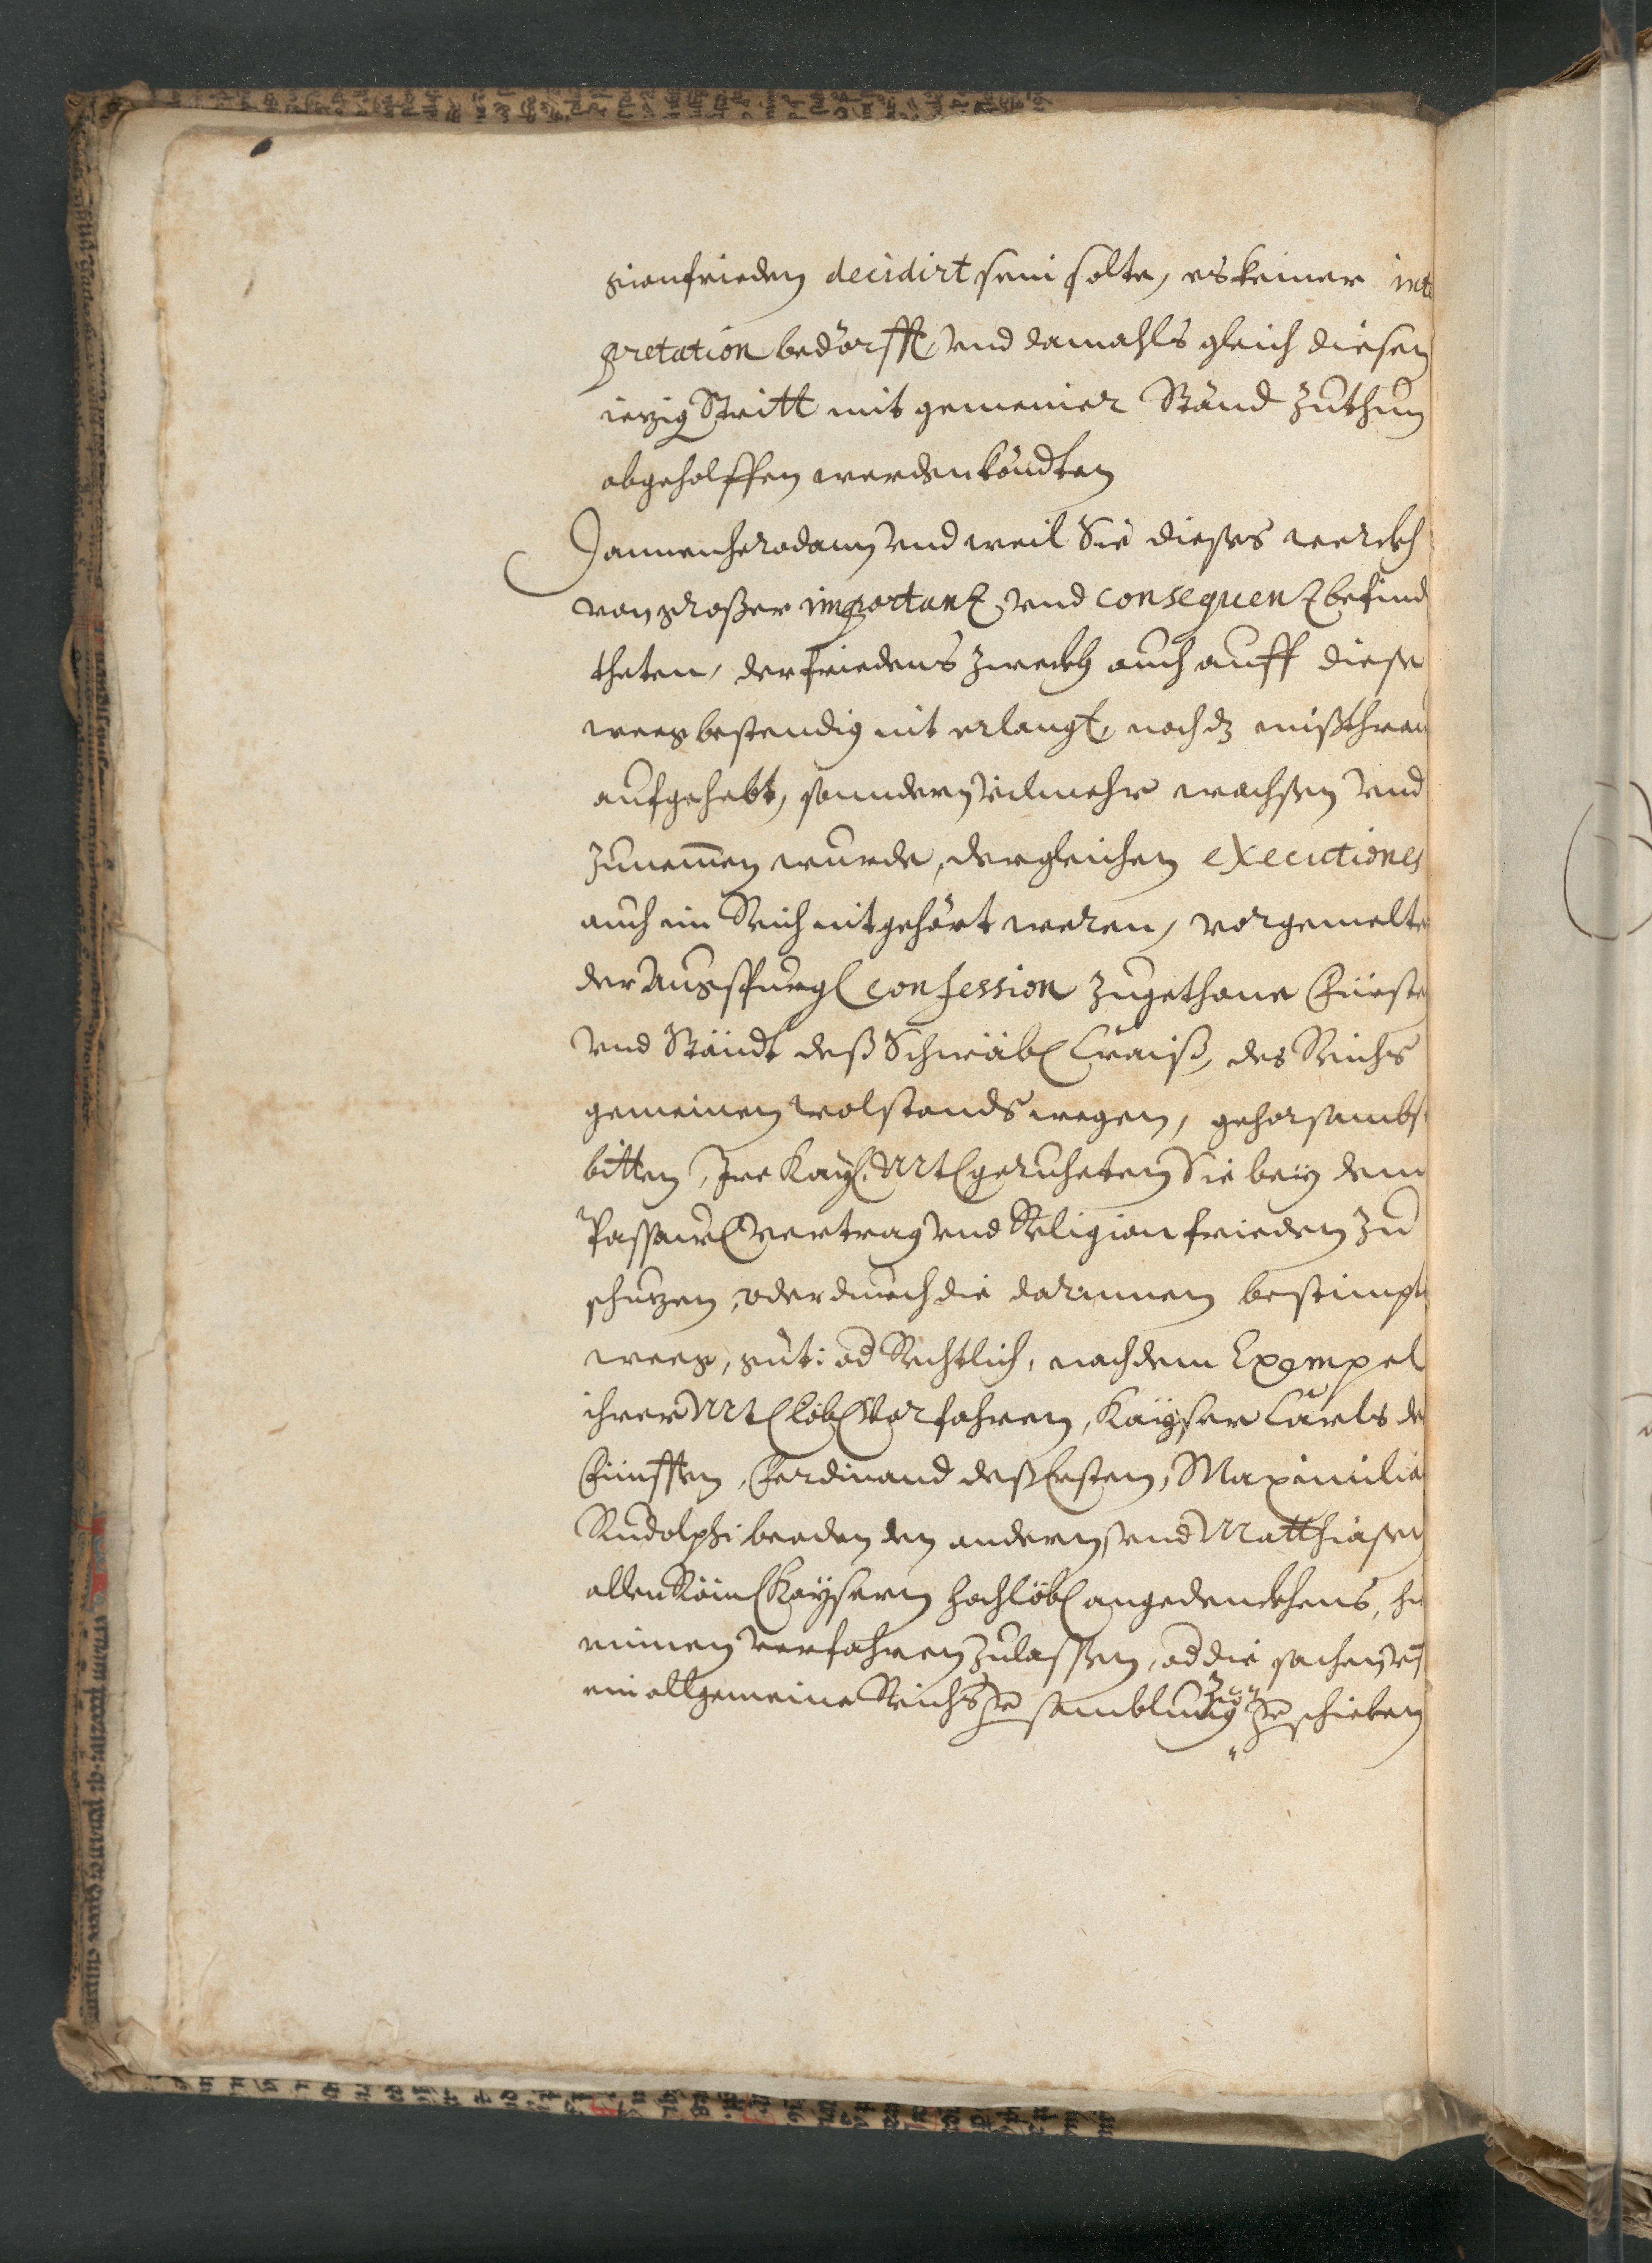 gionfrieden decidirt sein solte, es keiner inte
pretation bedörfft, und damahls gleich diesen
iezig Stritt mit gemeiner Ständ zuthun
abgeholffen werden köndten
Dannenhero dann und weil Sie dieses werckh
von großer importantz, und consequentz befind
theten, der friedens zweckh auch auff diese
weeg bestendig nit erlangt, noch dz mißthrau
aufgehebt, sonndern vilmehr wachsen und
zunemen wurde, dergleichen executiones
auch im Reich nit gehört weren, vorgemelte
der Augspurg Confession zugethane Fürste
und Ständt deß Schwäb Craiß, des Reichs
gemeinen wolstands wegen, gehorsambs
bitten, Ire Kay. Mt geruheten Sie bey dem
Passaw vertrag und Religion frieden zu
schuzen, oder durch die darinnen bestimpt
weeg, güt: od Rechtlich, nach dem Exempel
ihrer Mt löb Vorfahren, Kayser Carls de
Fünfften, Ferdinand deß Ersten, Maximilia
Rudolphi beeden den andern, und Matthiasen
allen Röm Kaysern hochlöb angedenckhens, hi
rinnen verfahren zulassen, od die sachen uf
ein allgemeine Reichs samblung zu schieben